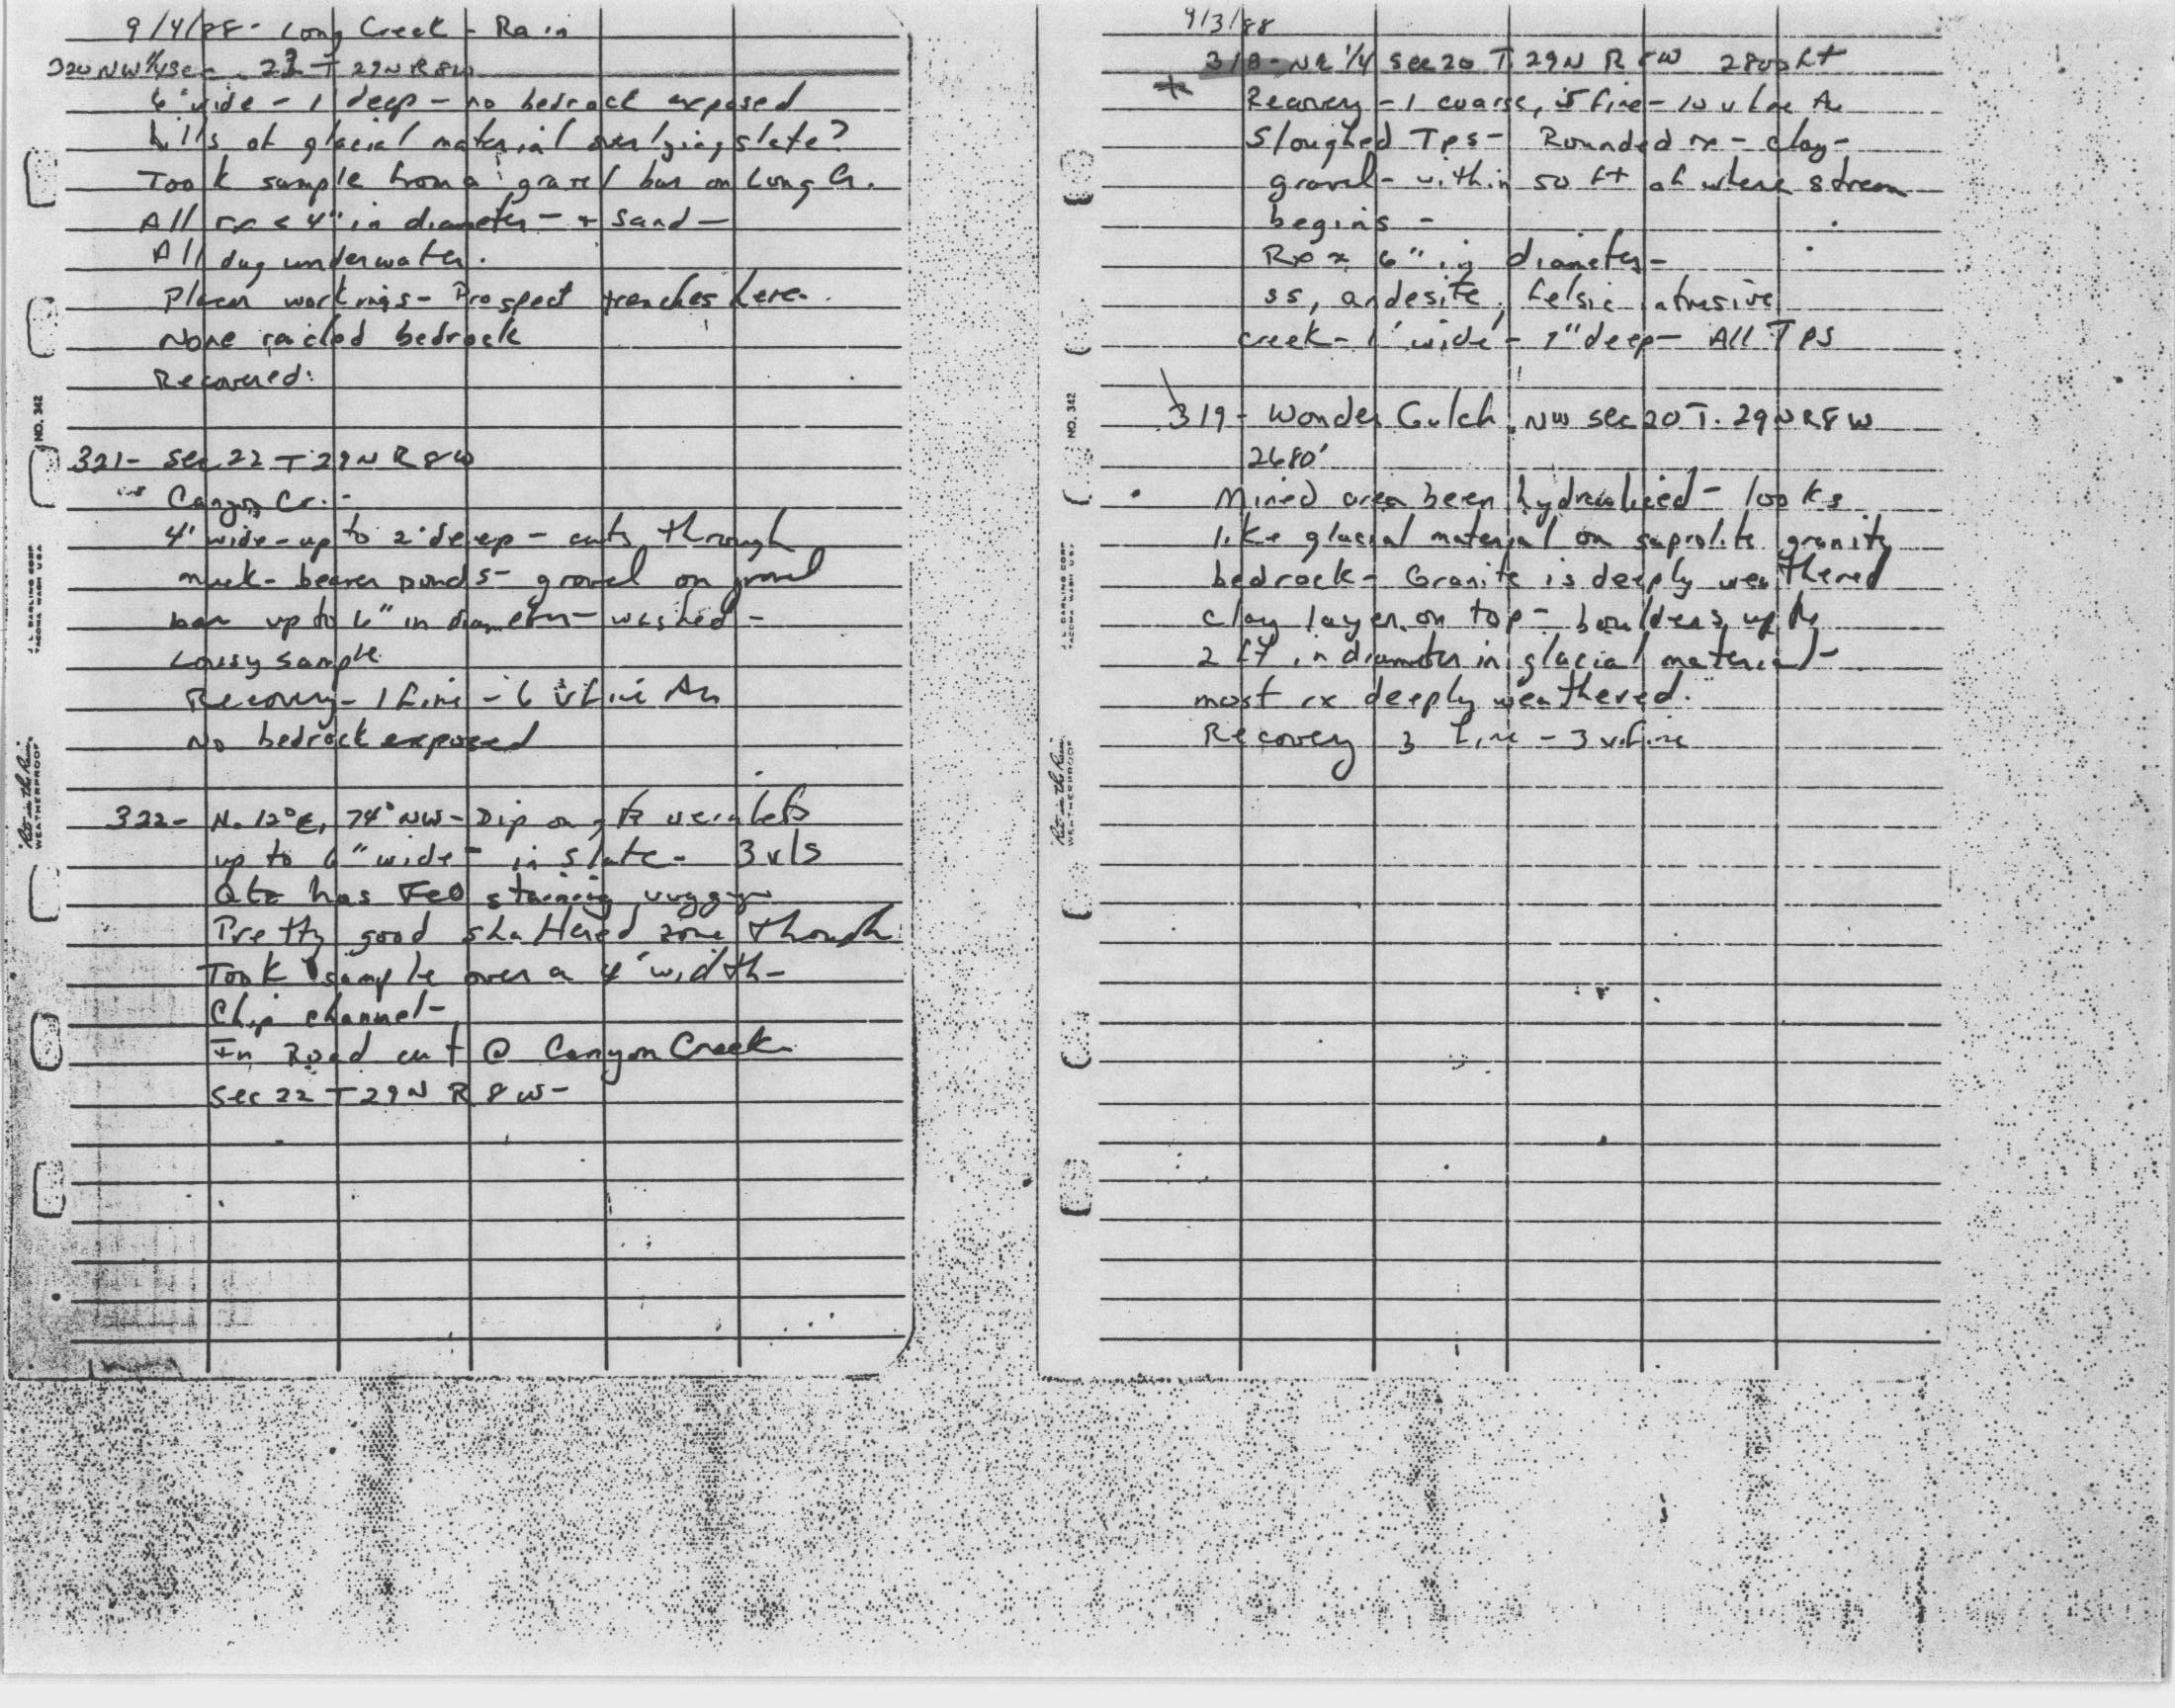 9/4/88 - Long Creek - Rain
320 NW 1/4 Sec. 23 T 29N R8W
6' wide - 1' deep - no bedrock exposed
hills of glacial material overlying slate?
Took sample from a gravel bar on Long Cr.
All rx < 4" in diameter - + sand -
All dug underwater.
Placer workings - Prospect trenches here.
None raclod bedrock
Recovered:
321- Sec 22 T 29N R 8W
Canyon Cr. -
4' wide - up to 2' deep - cuts through
muck - beaver ponds - gravel on gravel
bar up to 6" in diameter - washed -
Lousy sample
Recovery - 1 fine - 6 v fine Au
No bedrock exposed
322- N. 12°E, 74° NW - Dip on qtz veinlets
up to 6" wide - in slate - 3 vls
Qtz has FeO staining vuggy
Pretty good shattered zone though
Took sample over a 4' width -
Chip channel -
In Road cut @ Canyon Creek
Sec 22 T 29N R 8W -
NO. 342
J. L. DARLING CORP
TACOMA WASH USA
Rite in the Rain
WEATHERPROOF
9/3/88
318- NE 1/4 Sec 20 T. 29N R 8W 2800 ft
Recovery - 1 coarse, 5 fine - 10 v fine Au
Sloughed Tps - Rounded rx - clay -
gravel - within 50 ft of where stream
begins -
Rx ≈ 6" in diameter -
ss, andesite, felsic intrusive
creek - 1' wide - 1" deep - All TPS
319- Wonder Gulch, NW Sec 20 T. 29N R8W
2680'
Mined area been hydrauliced - looks
like glacial material on saprolite granite
bedrock - Granite is deeply weathered
clay layer on top - boulders up to
2 ft in diameter in glacial material -
most rx deeply weathered.
Recovery 3 fine - 3 v. fine
NO. 342
J. L. DARLING CORP
TACOMA WASH USA
Rite in the Rain
WEATHERPROOF